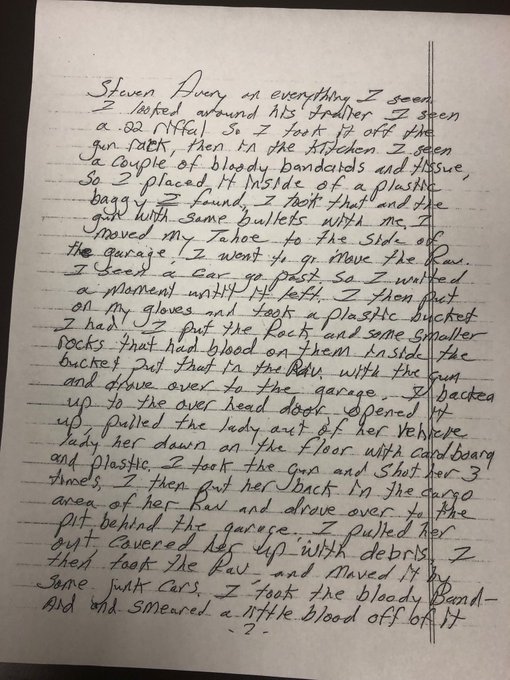 Steven Avery on everything I seen
I looked around his trailer I seen
a 22 riffal so I took it off the
gun rack, then in the kitchen I seen
a couple of bloody bandaids and tissue,
So I placed it inside of a plastic
baggy I found, I took that and the
gun with some bullets with me. I
moved my Tahoe to the side of
the garage. I went to go move the Rav.
I seen a car go past so I waited
a moment until it left. I then put
on my gloves and took a plastic bucket
I had. I put the Rock and some smaller
rocks that had blood on them inside the
bucket put that in the Rav. with the gun
and drove over to the garage. I backed
up to the over head door opened it
up, pulled the lady out of her vehicle
lady her down on the floor with cardboard
and plastic. I took the gun and shot her 3
times, I then put her back in the cargo
area of her Rav and drove over to the
pit behind the garage. I pulled her
out, covered her up with debris, I
then took the Rav, and moved it by
some junk cars. I took the bloody Band-
Aid and smeared a little blood off of it
-2-